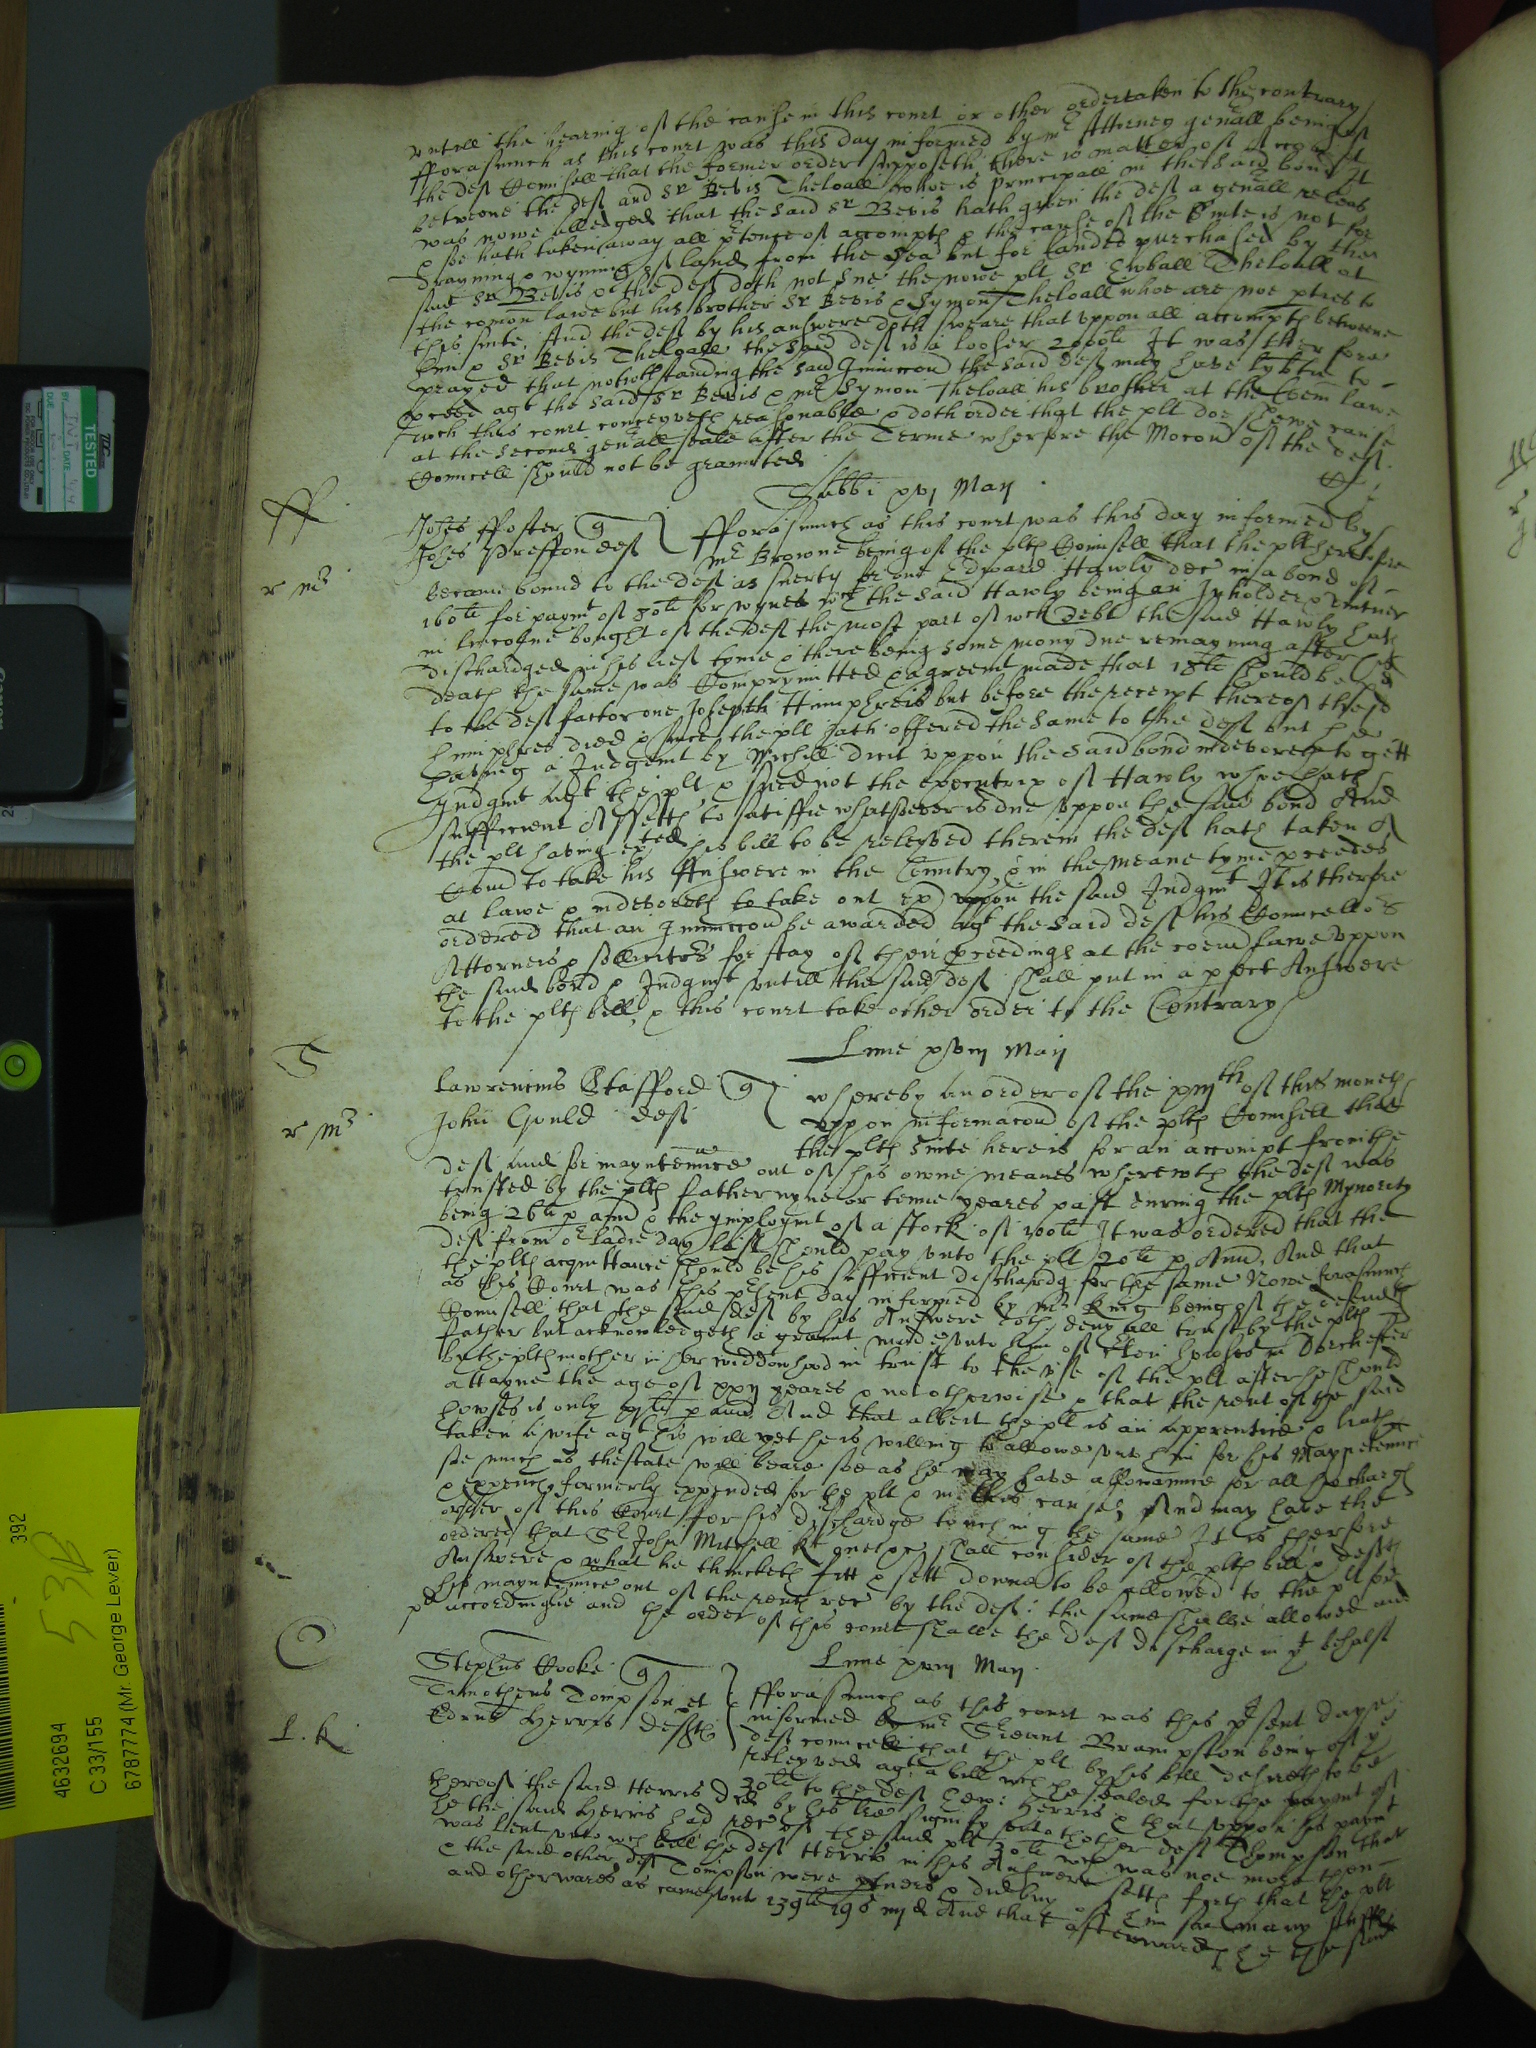 untill the hearing of the cause in this court or other order taken to the contrary
fforasmuch as this court was this day informed by mr Attorney genall being of
the def Counsell that the former order supposeth there is matter of Accompt
betweene the def and Sr Bevis Theloall whoe is principall in the said bond It
was nowe alledged that the said Sr Bevis hath given the def a genall releas
& soe hath taken away all ptence of accompts & the cause of the Suite is not for
drayning & wyning of land from the Sea but for landes purchased by the
said Sr Bevis & the def doth not sue the nowe plt Sr Ewball Theloall at
the comon lawe but his brother Sr Bevis & Symon Theloall whoe are noe pties to
this suite And the def by his answere doth sweare that uppon all accompts betweene
him & Sr Bevis Theloall the said def is a looser 2000li It was therfore
prayed that notwthstanding the said Iniunccon the said def may have lybtie to
pceed agt the said Sr Bevis & mr Symon Theloall his brother at the Coen lawe
wch this court conceyveth reasonable & doth order that the plt doe shewe cause
at the second genall seale after the Terme wherfore the Mocon of the def
Councell should not be graunted
Sabbi xvj Maij
ff
Johes ffoster q
Johes Presson def
fforasmuch as this court was this day informed by
mr Browne being of the plts Counsell that the plt heretofore
r mr
became bound to the def as suerty for one Edward Hawly dec in a bond of
160li for paymt of 80li for wynes wch the said Hawly being an Inholder & vintner
in Lincolne bought of the def the most part of wch debt the said Hawly hath
dischardged in his lief tyme & there being some mony due remayning after his
death the same was Comprymitted & agreemt made that 18li should be pd
to the def factor one Joseph Humphreis but before the receipt thereof the sd
Humphres died & since the plt hath offered the same to the def but he
having a Judgemt by Nihill dicit uppon the said bond indevoreth to gett
Judgmt agt the plt & sued not the executrix of Hawly whoe hath
sufficient Assetts to satisfie whatsoever is due uppon the said bond And
the plt having exted his bill to be releyved therein the def hath taken A
Comd to take his Answere in the Country, & in the meane tyme pceedes
at lawe & indevoreth to take out exo uppon the said Judgmt It is therfore
ordered that an Iniunccon be awarded agt the said def his Councellors
Attorneis & sollicitrs for stay of their pceedings at the coen lawe uppon
the said bond & Judgmt untill the said def shall put in a pfect Answere
to the plts bill, & this court take other order to the Contrary
Lune xviij Maij
S
Lawrencius Stafford q
John Gould def
whereby an order of the xiijth of this moneth
uppon informacon of the plts Counsell that
r mr
the plts Suite here is for an accompt from the
def and for mayntenance out of his owne meanes wherewth the def was
trusted by the plts father nyne or tenne yeares past during the plts Mynority
being 26li p ann & the ymploymt of a stock of 100li It was ordered that the
def from or Ladie day last should pay unto the plt 20li p Ann, And that
the plts acquittance should be his sufficient dischardg for the same Nowe forasmuch
as this Court was this psent day informed by mr King being of the defendts
Counsell that the said def by his Answere doth deny all trust by the plts
father but acknowledgeth a graunt made unto him of Cten howses in Dorchester
by the plts mother in her widdowhood in trust to the use of the plt after he should
attayne the age of xxij yeares & not otherwise & that the rent of the said
howses is only p ann, And that albeit the plt is an apprentice & hath
taken a wife agt his will yet he is willing to allowe unto him for his Mayntenance
soe much as the state will beare soe as he may have allowance for all such chargs
& expencs formerly expended for the plt & in this cause, And may have the
order of this Court for his dischardge touching the same It is therfore
ordered that Sr John Mitchell Kt one &c shall consider of the plts bill & defts
Answere & what he thincketh fitt & sett downe to be allowed to the plt for
his mayntenance out of the rents rec by the def: the same shalbe allowed and
pd accordinglie and the order of this court shalbe the def discharge in yt behalf
Lune xviij Maij
C
Stephus Cooke q
Timotheus Tompson et
Edrus Herris defts
fforasmuch as this court was this psent daye
informed by mr Serieant Brampston being of ye
def councell that the plt by his bill desireth to be
L. k
releyved agt a bill wch he sealed for the paymt of
30li to the def Edw: Herris & that uppon his paymt
thereof the said Herris did by his lre signify unto thother def Thompson that
he the said Herris had recd of the said plt 30li wch was noe more then
was lent unto wch bill the def Herris in his Answere setts forth that the plt
& the said other def Tompson were ptners & did buy of him soe many stuffs
and other wares as came unto 139li 19s iiijd And that afterwards he the said
TESTED
392
53B
4632694
C 33/155
6787774 (Mr. George Lever)